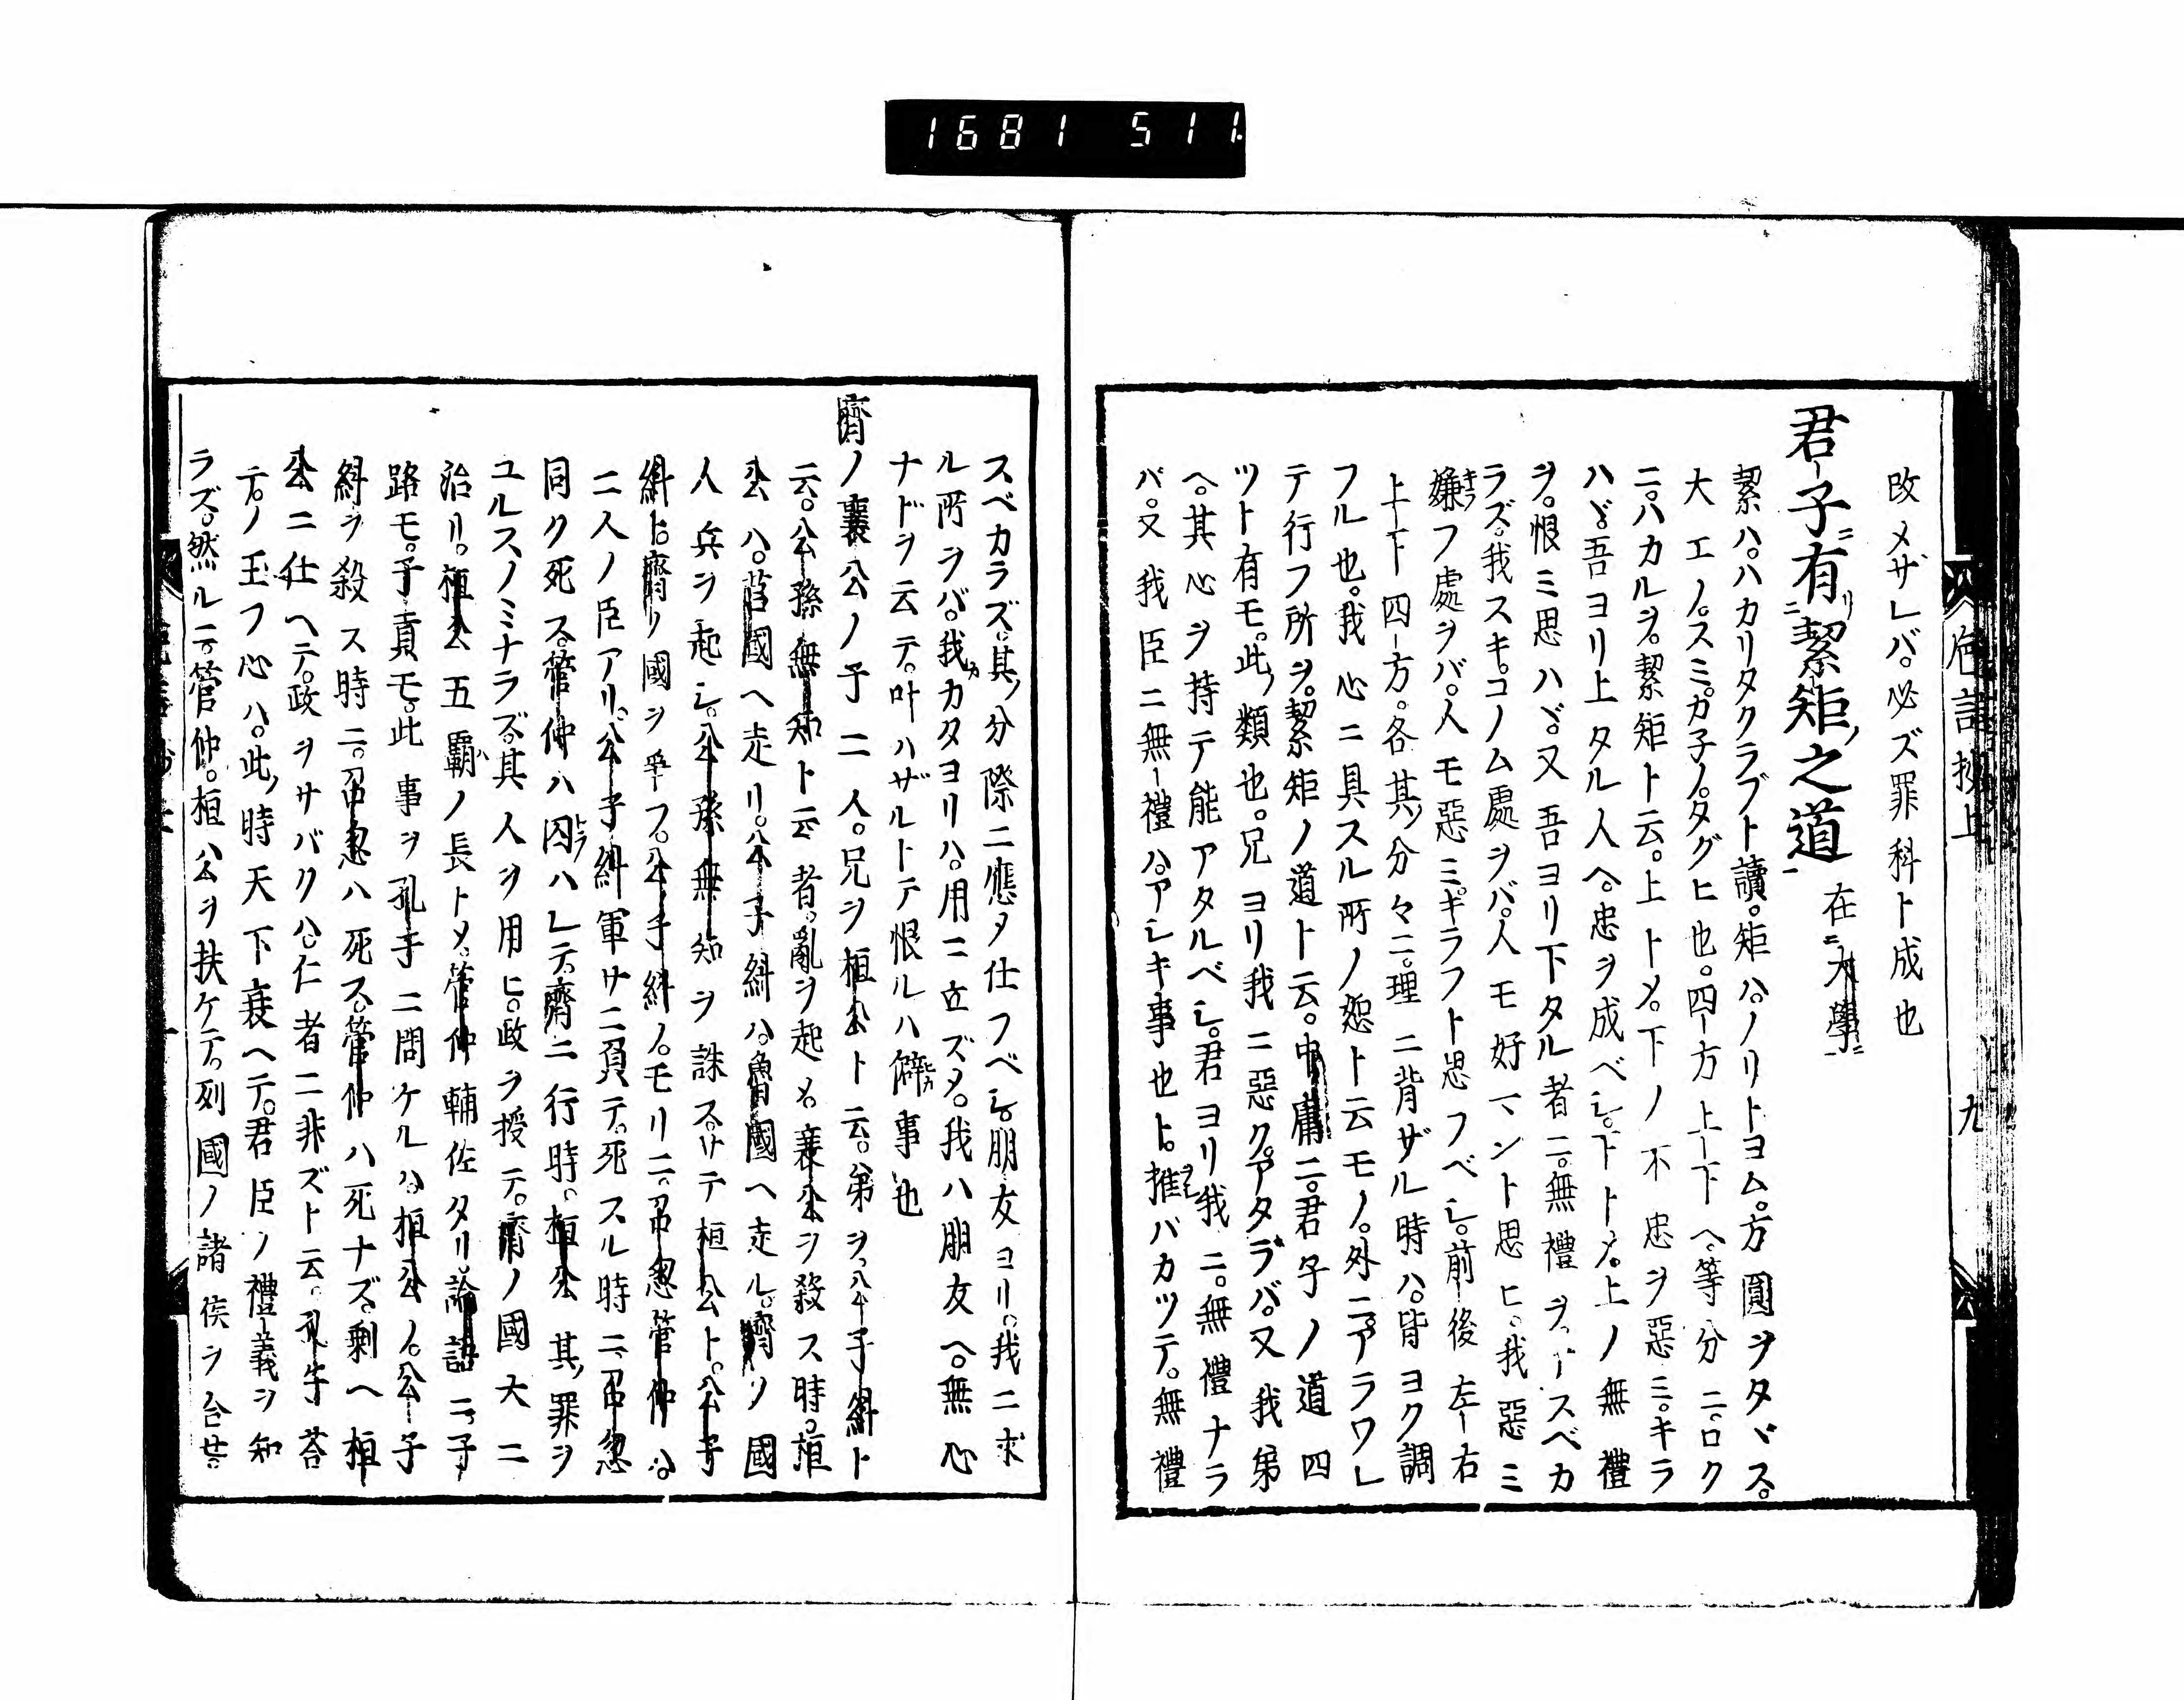 1681 511
改メザレバ。必ズ罪科ト成也
君子有絜矩之道 在大學
絜ハ。ハカリタクラブト讀。矩ハ。ノリトヨム。方圓ヲタヾス。
大エノ。スミ。ガ子ノ。タグヒ也。四方上下ヘ。等分ニ。ロク
ニ。ハカルヲ。絜矩ト云。上トメ。下ノ不忠ヲ惡ミ。キラ
ハヾ吾ヨリ上タル人ヘ。忠ヲ成ベシ。下トメ。上ノ無禮
ヲ。恨ミ思ハヾ又吾ヨリ下タル者ニ。無禮ヲ。スベカ
ラズ。我スキ。コノム處ヲバ。人モ好マント思ヒ。我惡ミ
嫌フ處ヲバ。人モ惡ミ。ギラフト思フベシ。前後左右
上下四方。各其分々ニ。理ニ背ザル時ハ。皆ヨク調
フル也。我心ニ具スル所ノ恕ト云モノ。外ニ。アラワレ
テ行フ所ヲ。絜矩ノ道ト云。中庸ニ。君子ノ道四
ツト有モ。此類也。兄ヨリ我ニ惡ク。アタラバ。又我弟
ヘ。其心ヲ持テ能アタルベシ。君ヨリ我ニ。無禮ナラ
バ。又我臣ニ無禮ハ。アシキ事也ト。推バカツテ。無禮
九
スベカラズ。其分際ニ應メ仕フベシ。朋友ヨリ。我ニ求
ル所ヲバ。我カタヨリハ。用ニ立ズメ。我ハ朋友ヘ。無心
ナドヲ云テ。叶ハザルトテ恨ルハ僻事也
齊ノ襄公ノ子二人。兄ヲ桓公ト云。弟ヲ。公子糾ト
云。公孫無知ト云者。亂ヲ起メ。襄公ヲ殺ス時。桓
公ハ。莒國ヘ走リ。公子糾ハ。魯國ヘ走ル。齊ノ國
人兵ヲ起シ。公孫無知ヲ誅ス。サテ桓公ト。公子
糾ト。齊ノ國ヲ爭フ。公子糾ノ。モリニ。召忽管仲ハ。
二人ノ臣アリ。公子糾軍サニ負テ。死スル時ニ。召忽
同ク死ス。管仲ハ囚ハレテ。齊ニ行時。桓公其罪ヲ
ユルスノミナラズ。其人ヲ用ヒ。政ヲ授テ。齊ノ國大ニ
治リ。桓公五霸ノ長トメ。管仲輔佐タリ。論語ニ。子
路モ。子貢モ。此事ヲ孔子ニ問ケルハ。桓公ノ。公子
糾ヲ殺ス時ニ。召忽ハ死ス。管仲ハ死ナズ。剩ヘ桓
公ニ仕ヘテ。政ヲサバクハ。仁者ニ非ズト云。孔子荅
テ。ノ玉フ心ハ。此時天下衰ヘテ。君臣ノ禮義ヲ知
ラズ。然ルニ。管仲。桓公ヲ扶ケテ。列國ノ諸侯ヲ合せ。